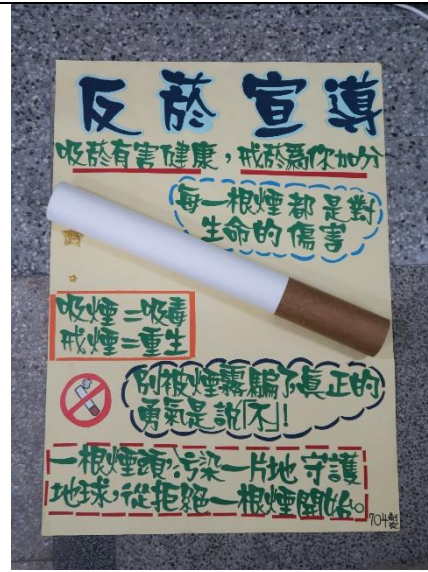 反菸宣導
吸菸有害健康，戒菸為你加分
每一根煙都是對
生命的傷害
吸煙=吸毒
戒煙=重生
別被煙霧騙了真正的
勇氣是說「不」!
一根煙頭,污染一片地 守護
地球,從拒絕一根煙開始。
704